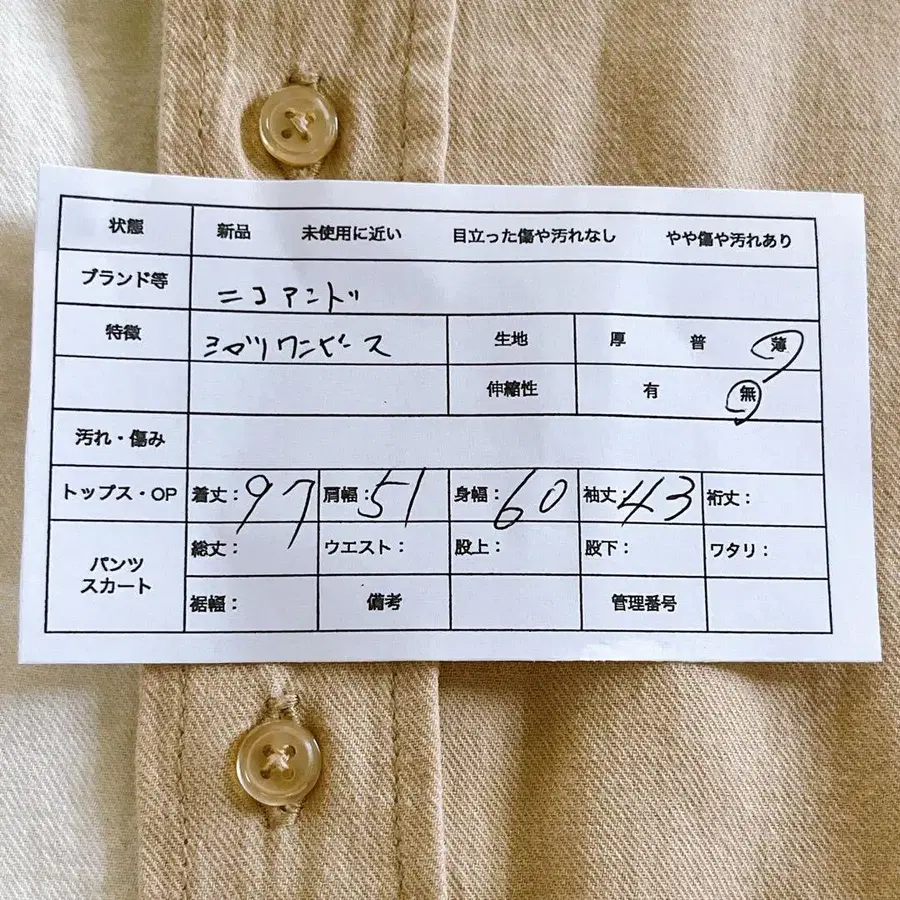 状態 新品 未使用に近い 目立った傷や汚れなし やや傷や汚れあり
ブランド等 ニコアンド
特徴 シャツワンピース 生地 厚 普 薄
伸縮性 有 無
汚れ・傷み
トップス・OP 着丈：97 肩幅：51 身幅：60 袖丈：43 裄丈：
パンツ スカート 総丈： ウエスト： 股上： 股下： ワタリ：
裾幅： 備考 管理番号